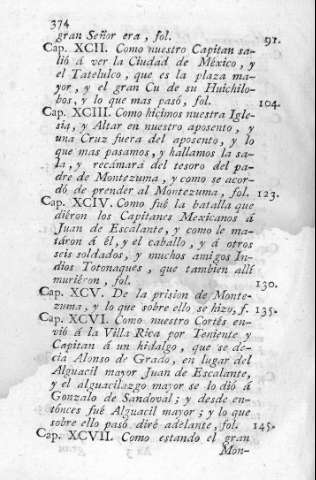 374
gran Señor era, fol. 91.
Cap. XCII. Como nuestro Capitan sa-
lió á ver la Ciudad de México, y
el Tatelulco, que es la plaza ma-
yor, y el gran Cu de su Huichilo-
bos, y lo que mas pasó, fol. 104.
Cap. XCIII. Como hicimos nuestra Igle-
sia, y Altar en nuestro aposento, y
una Cruz fuera del aposento, y lo
que mas pasamos, y hallamos la sa-
la, y recámara del tesoro del pa-
dre de Montezuma, y como se acor-
dó de prender al Montezuma, fol. 123.
Cap. XCIV. Como fué la batalla que
diéron los Capitanes Mexicanos á
Juan de Escalante, y como le ma-
táron á él, y el caballo, y á otros
seis soldados, y muchos amigos In-
dios Totonaques, que tambien allí
muriéron, fol. 130.
Cap. XCV. De la prision de Monte-
zuma, y lo que sobre ello se hizo, f. 135.
Cap. XCVI. Como nuestro Cortés en-
vió á la Villa Rica por Teniente y
Capitan á un hidalgo, que se de-
cia Alonso de Grado, en lugar del
Alguacil mayor Juan de Escalante,
y el alguacilazgo mayor se lo dió á
Gonzalo de Sandoval; y desde en-
tónces fué Alguacil mayor; y lo que
sobre ello pasó diré adelante, fol. 145.
Cap. XCVII. Como estando el gran
Mon-